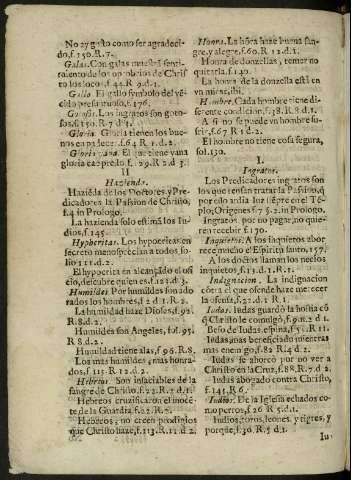 No ay gusto como ser agradecido, f. 150. R. 7.
Galas. Con galas muestra sentimiento de los oprobios de Christo los loco, f. 44. R. 9. d. 1.
Gallo. El gallo symbolo del presuntuoso, f. 176.
Gotosos. Los ingratos son gotosos, f. 150. R. 7. d. 1.
Gloria. Gloria tienen los buenos en padecer. f. 64. R. 1. d. 2.
Gloria vana. El que tiene vana gloria es f. 29. R. 2. d. 3.
H
Hazienda.
Hazienda de los Doctores, y Predicadores la Passion de Christo, f. 4. in Prologo.
La hazienda solo estima los Iudios, f. 145.
Hypocritas. Los hypocritas en secreto menosprecian a todos, folio 111. d. 2.
El hypocrita en alcançado el oficio, descubre quien es, f. 123. d. 3.
Humildes Por humildes son adorados los hombres, f. 2. d. 1. R. 2.
La humildad haze Dioses, f. 92. R. 8. d. 2.
Humildes son Angeles, fol. 95. R. 8. d. 2.
Humildad tiene alas, f. 96. R. 8.
Los mas humildes, mas honrados, f. 115. R. 12. d. 2.
Hebreos. Son insaciables de la sangre de Christo, f. 21. R. 7. d. 1.
Hebreos crucificaron el inocente de la Guardia, f. 22. R. 7.
Hebreos, no creen prodigios que Christo haze, f. 113. R. 12. d. 2.
Honra. La hora haze buena sangre, y alegre, f. 60. R. 12. d. 1.
Honra de donzellas, temer no quitarla, f. 130.
La honra de la donzella está en vn mirar, ibi.
Hombre. Cada hombre tiene diferente condicion, f. 38. R. 8. d. 1.
A si no se puede vn hombre sufrir, f. 67. R. 1. d. 2.
El hombre no tiene cosa segura, fol. 130.
I.
Ingratos.
Los Predicadores ingratos son los que rehusan tratar la Passion, q̃ por ello ardia luz siempre en el Tẽplo, Origenes f. 7. §. 2. in Prologo.
Ingratos por no pagar, no quieren recebir f. 170.
Inquietos. A los inquietos aborrece mucho el Espiritu santo, 157.
A los doctos llaman los necios inquietos, f. 13. d. 1. R. 1.
Indignacion. La indignacion côtra el que ofende haze merecer la ofensa, f. 21. d. 1. R. 1.
Iudas. Iudas guardó la hostia cõ q̃ Christo le comulgó, f. 9. n. 2. d. 1.
Beso de Iudas, espina, f. 31. R. 11.
Iudas, mas beneficiado mientras mas enemigo, f. 82. R. 4. d. 2.
Iudas se ahorcó por no ver a Christo en la Cruz, f. 88. R. 7. d. 2.
Iudas abogado contra Christo, f. 143. R. 6.
Iudios. De la Iglesia echados como perros, f. 26. R. 5. d. 1.
Iudios, toros, leones, y tigres, y porque, f. 30. R. 5. d. 1.
Iu-